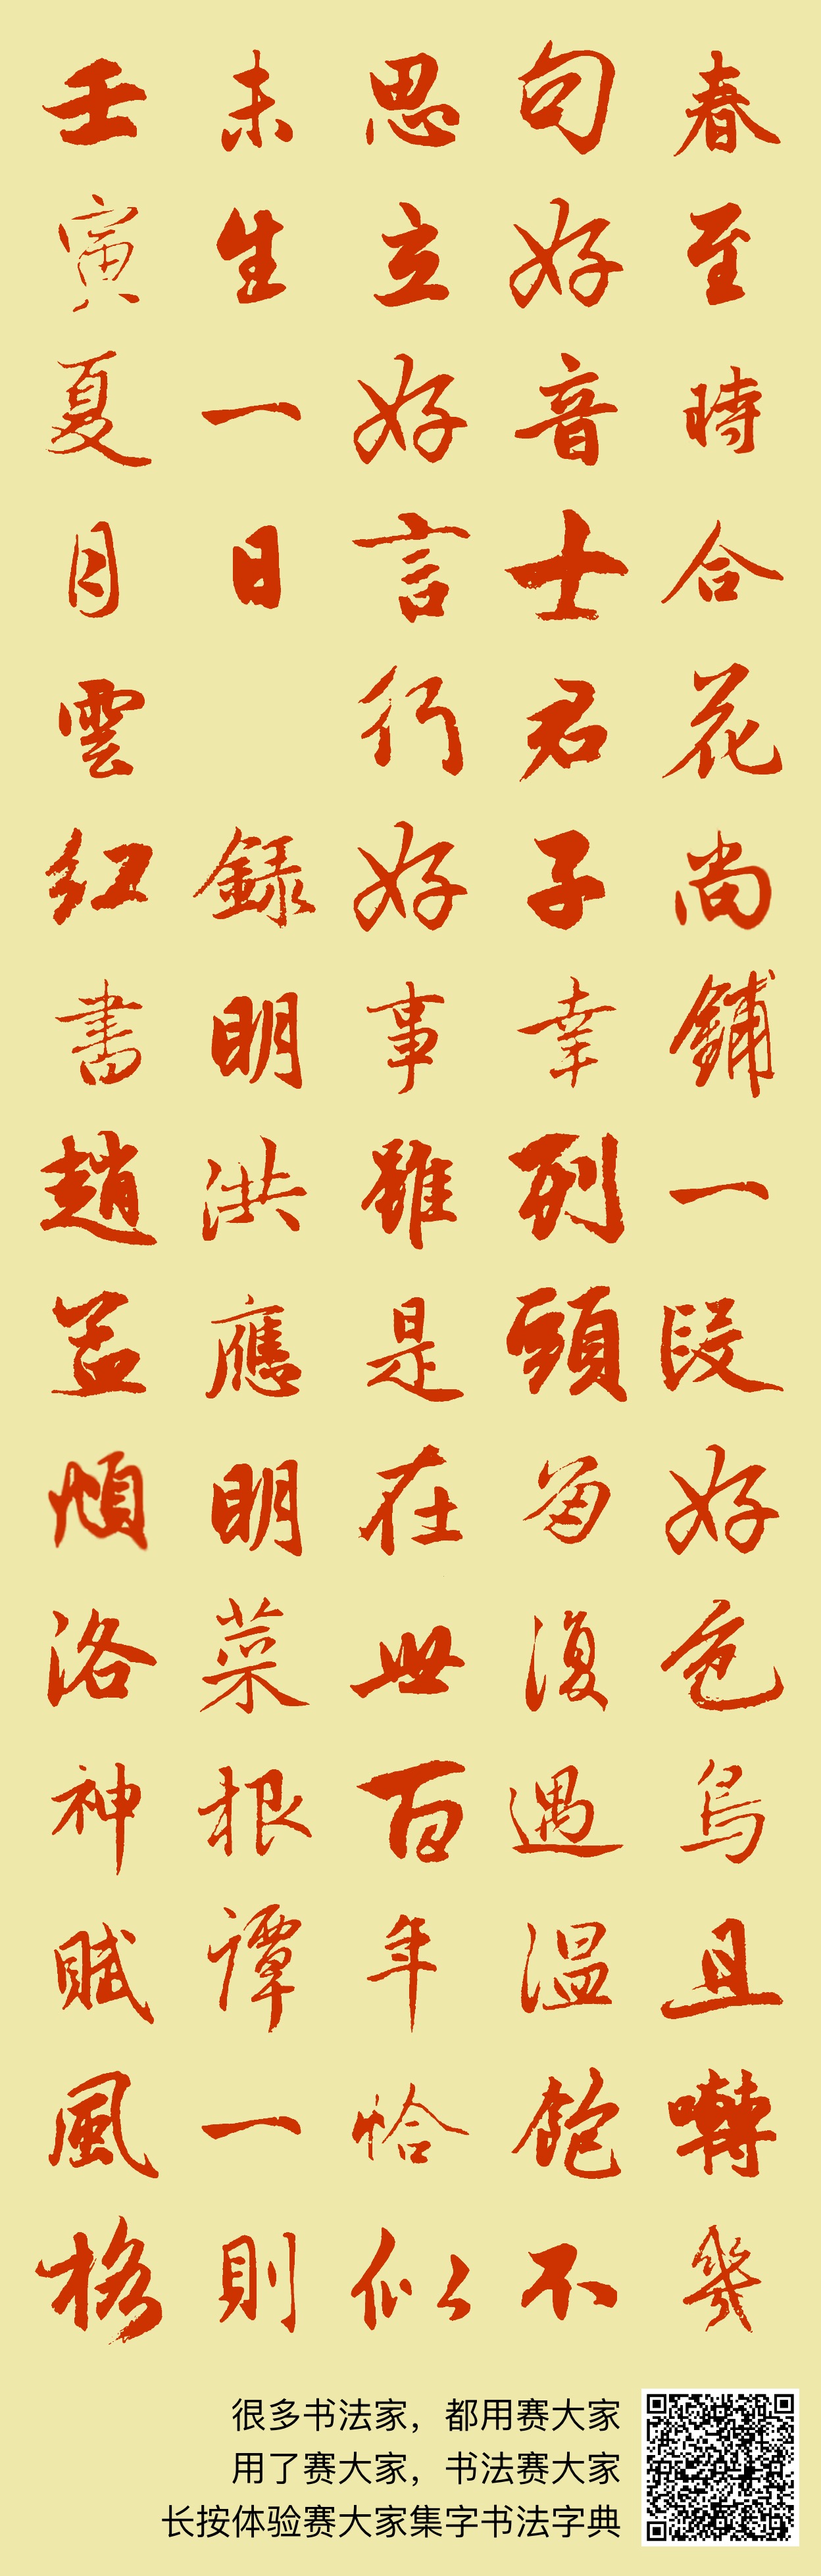 春至時合花尚鋪一段好色鳥且囀幾
句好音士君子幸列頭角復遇温飽不
思立好言行好事雖是在世百年恰似
未生一日 録明洪應明菜根譚一則
壬寅夏月雲红書趙孟頫洛神賦風格
很多书法家，都用赛大家
用了赛大家，书法赛大家
长按体验赛大家集字书法字典